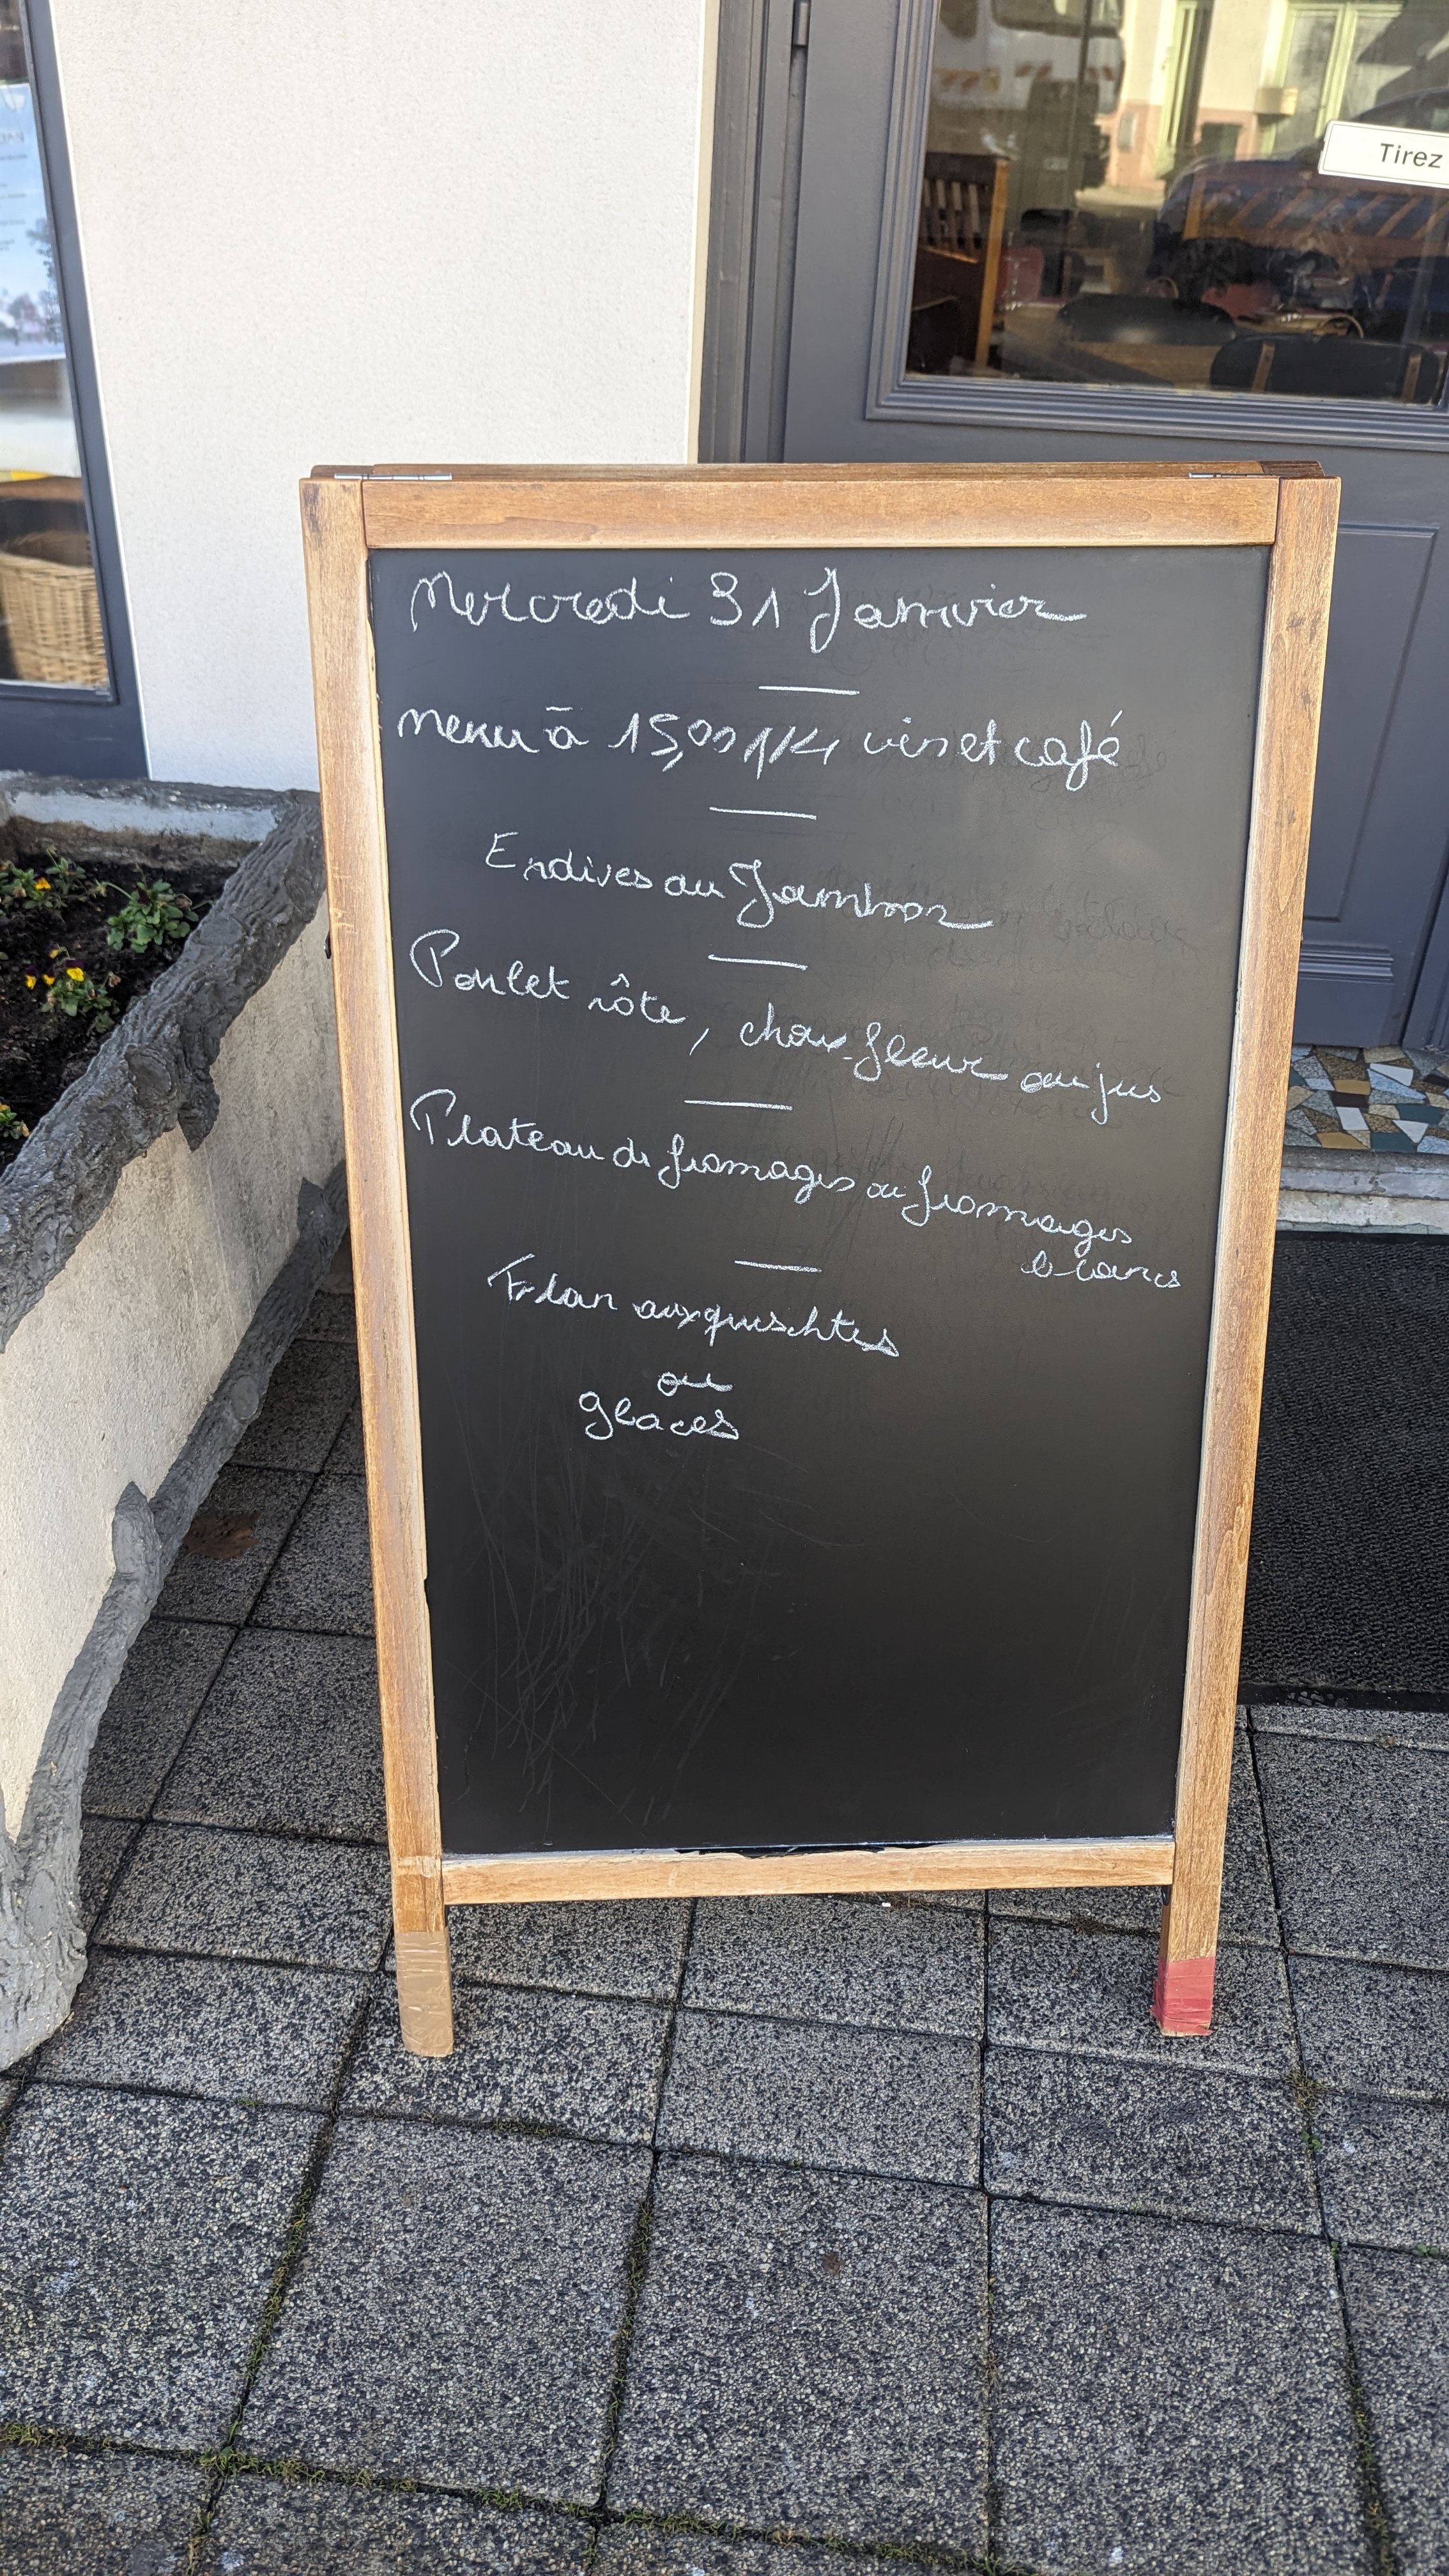 Tirez
Mercredi 31 Janvier
menu à 15,00 1/4 vin et café
Endives au Jambon
Poulet rôte, choux-fleur au jus
Plateau de fromages ou fromages
blancs
Flan aux
ou
glaces